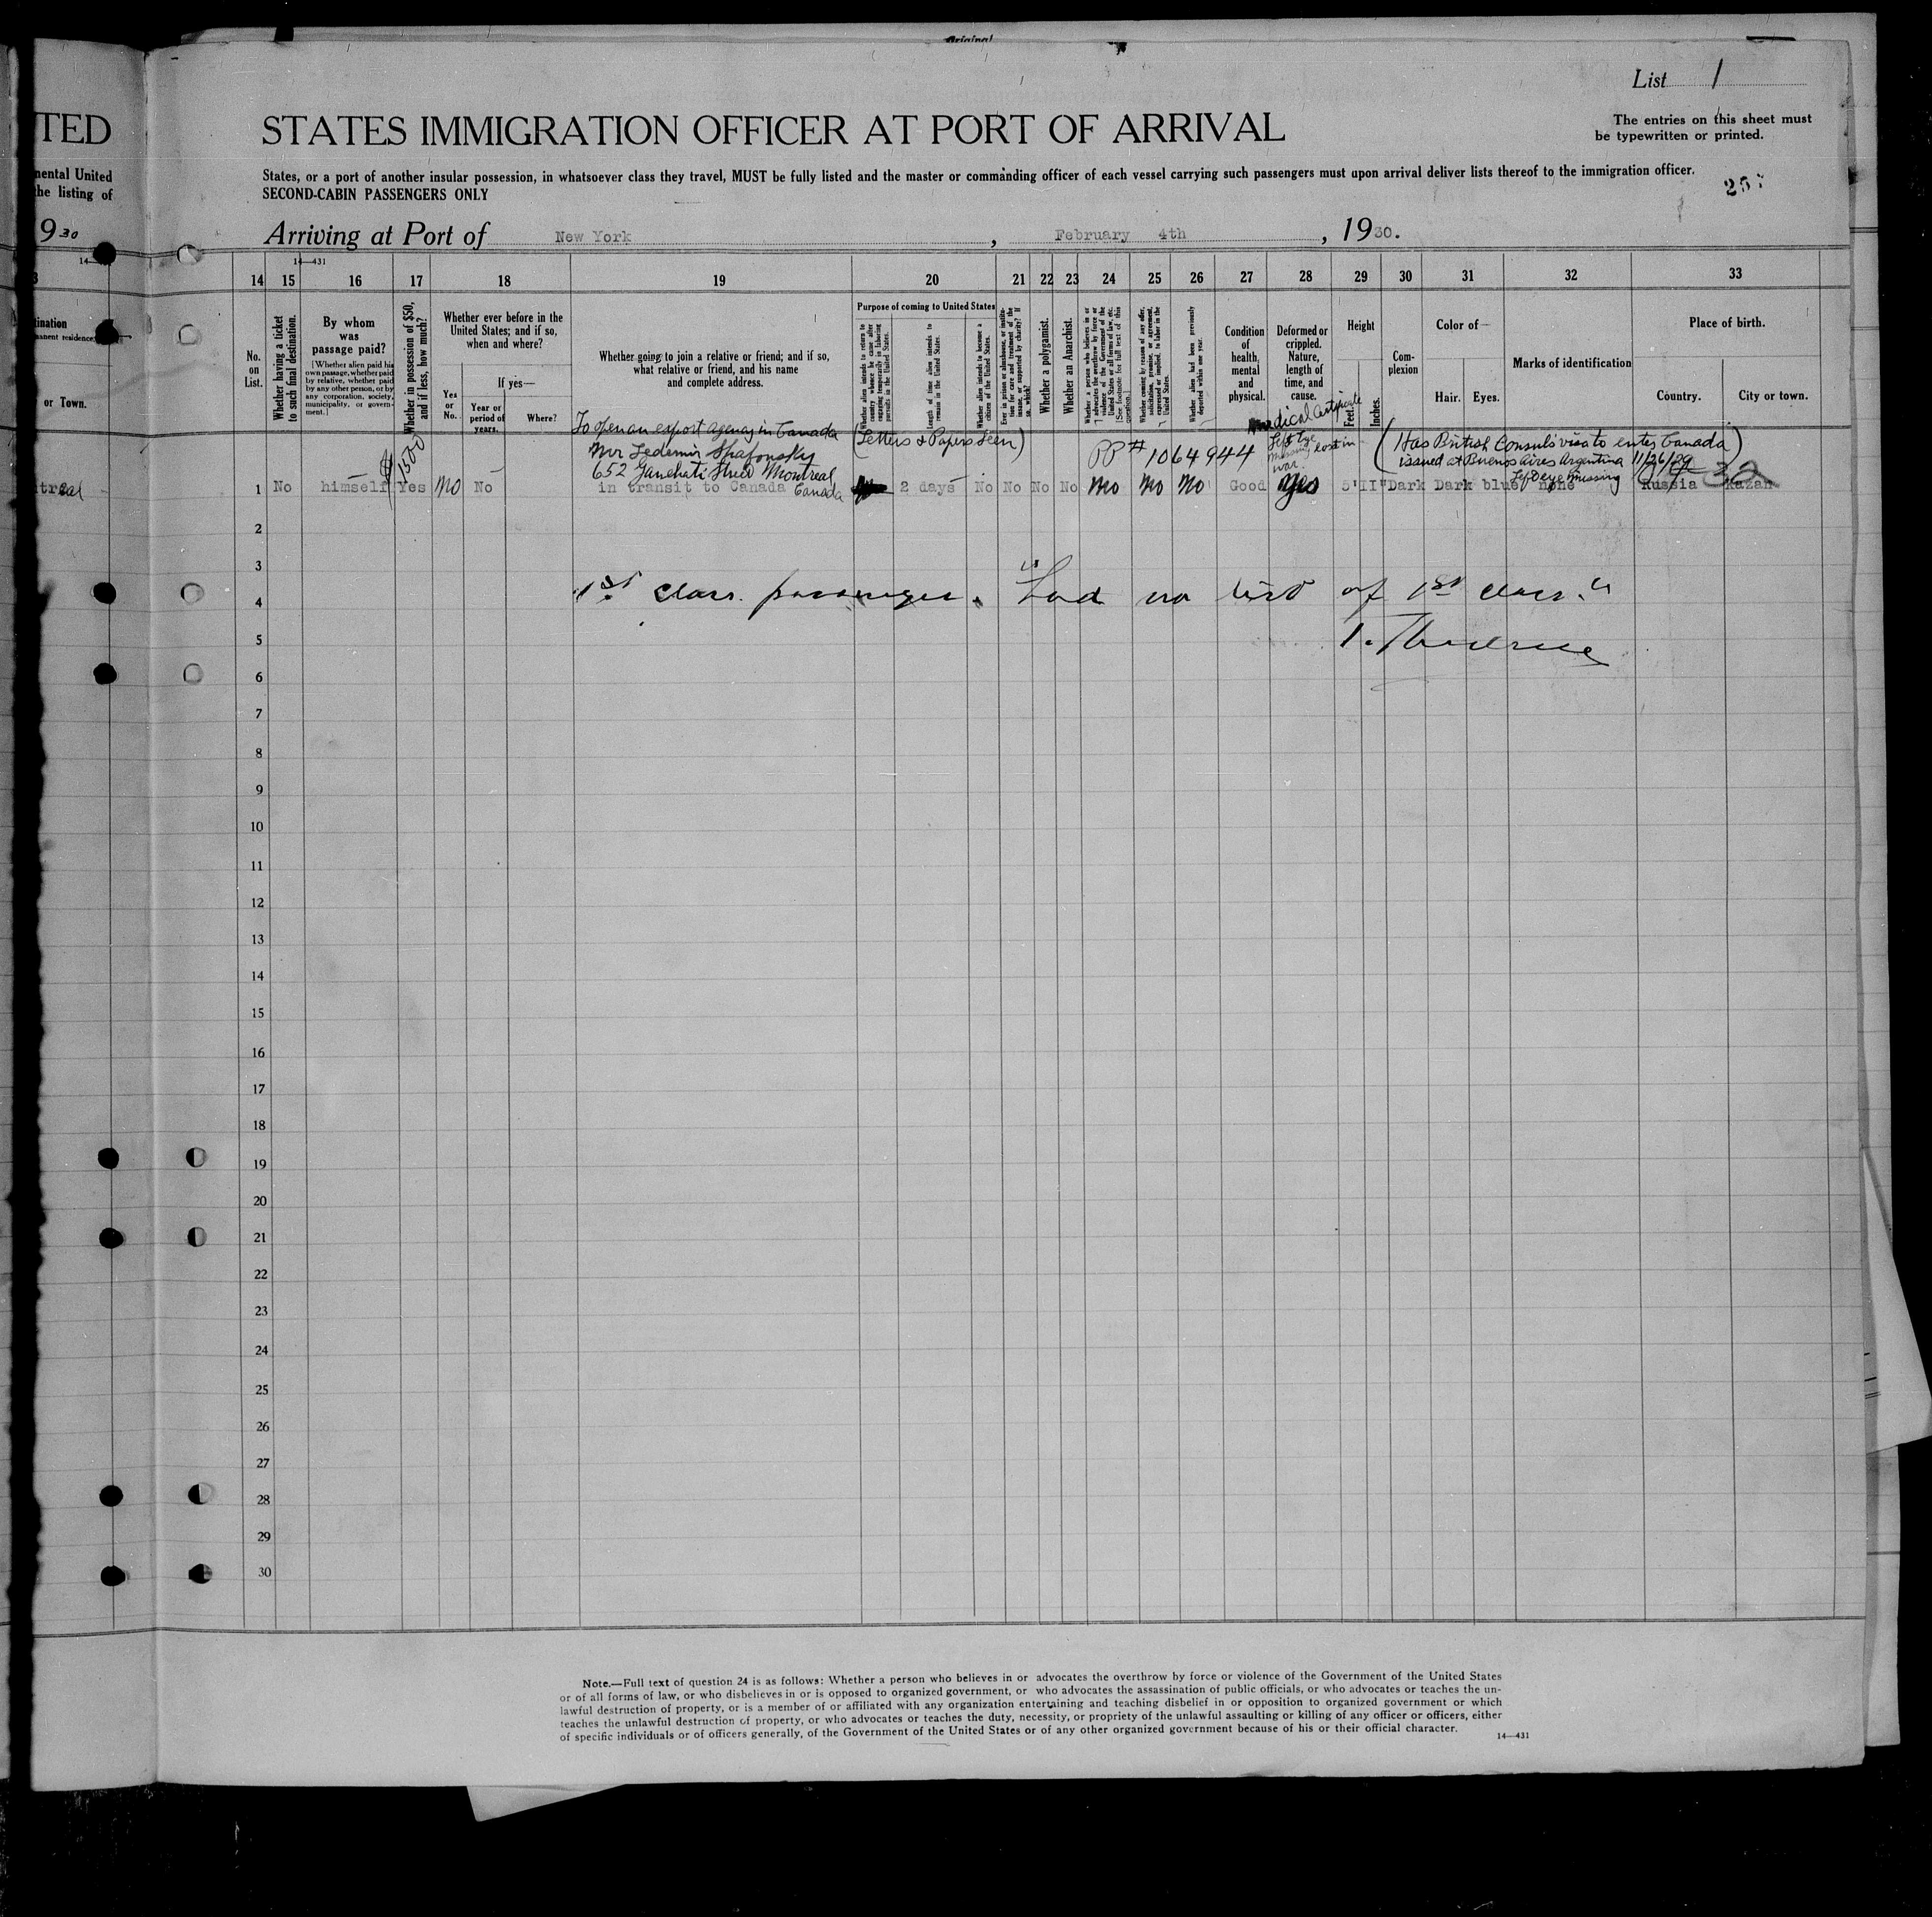 Original
List 1
TED
STATES IMMIGRATION OFFICER AT PORT OF ARRIVAL
The entries on this sheet must
be typewritten or printed.
nental United
the listing of
States, or a port of another insular possession, in whatsoever class they travel, MUST be fully listed and the master or commanding officer of each vessel carrying such passengers must upon arrival deliver lists thereof to the immigration officer.
SECOND-CABIN PASSENGERS ONLY
930
Arriving at Port of New York, February 4th, 1930.
14—431
14 15 16 17 18 19 20 21 22 23 24 25 26 27 28 29 30 31 32 33
ination
manent residence
or Town.
No.
on
List.
Whether having a ticket
to such final destination.
By whom
was
passage paid?
[Whether alien paid his
own passage, whether paid
by relative, whether paid
by any other person, or by
any corporation, society,
municipality, or govern-
ment.]
Whether in possession of $50,
and if less, how much?
Whether ever before in the
United States; and if so,
when and where?
Yes
or
No.
If yes—
Year or
period of
years.
Where?
Whether going to join a relative or friend; and if so,
what relative or friend, and his name
and complete address.
Purpose of coming to United States
Whether alien intends to return to
country whence he came after
engaging temporarily in laboring
pursuits in the United States.
Length of time alien intends to
remain in the United States.
Whether alien intends to become a
citizen of the United States.
Ever in prison or almshouse, or institu-
tion for care and treatment of the
insane, or supported by charity? If
so, which?
Whether a polygamist.
Whether an Anarchist.
Whether a person who believes in or
advocates the overthrow by force or
violence of the Government of the
United States or all forms of law, etc.
[See footnote for full text of this
question.]
Whether coming by reason of any offer,
solicitation, promise, or agreement,
expressed or implied, to labor in the
United States.
Whether alien had been previously
deported within one year.
Condition
of
health,
mental
and
physical.
Deformed or
crippled.
Nature,
length of
time, and
cause.
Height
Feet.
Inches.
Com-
plexion
Color of—
Hair.
Eyes.
Marks of identification
Place of birth.
Country.
City or town.
Medical Certificate
To open an export agency in Canada
(Letters & Papers Seen)
Left Eye
missing lost in
war.
PP # 1064944
(Has British Consuls visa to enter Canada
issued at Buenos Aires Argentina 11/26/29)
Mr
652 Street Montreal
Canada
$1500
Left eye missing
32
treal
1 No himself Yes No No in transit to Canada 2 days No No No No No No No Good Yes 5'II" Dark Dark blue none Russia Kazan
2
3
1st class passenger. "Had no list of 1st class."
4
5
6
7
8
9
10
11
12
13
14
15
16
17
18
19
20
21
22
23
24
25
26
27
28
29
30
Note.—Full text of question 24 is as follows: Whether a person who believes in or advocates the overthrow by force or violence of the Government of the United States
or of all forms of law, or who disbelieves in or is opposed to organized government, or who advocates the assassination of public officials, or who advocates or teaches the un-
lawful destruction of property, or is a member of or affiliated with any organization entertaining and teaching disbelief in or opposition to organized government or which
teaches the unlawful destruction of property, or who advocates or teaches the duty, necessity, or propriety of the unlawful assaulting or killing of any officer or officers, either
of specific individuals or of officers generally, of the Government of the United States or of any other organized government because of his or their official character.
14—431